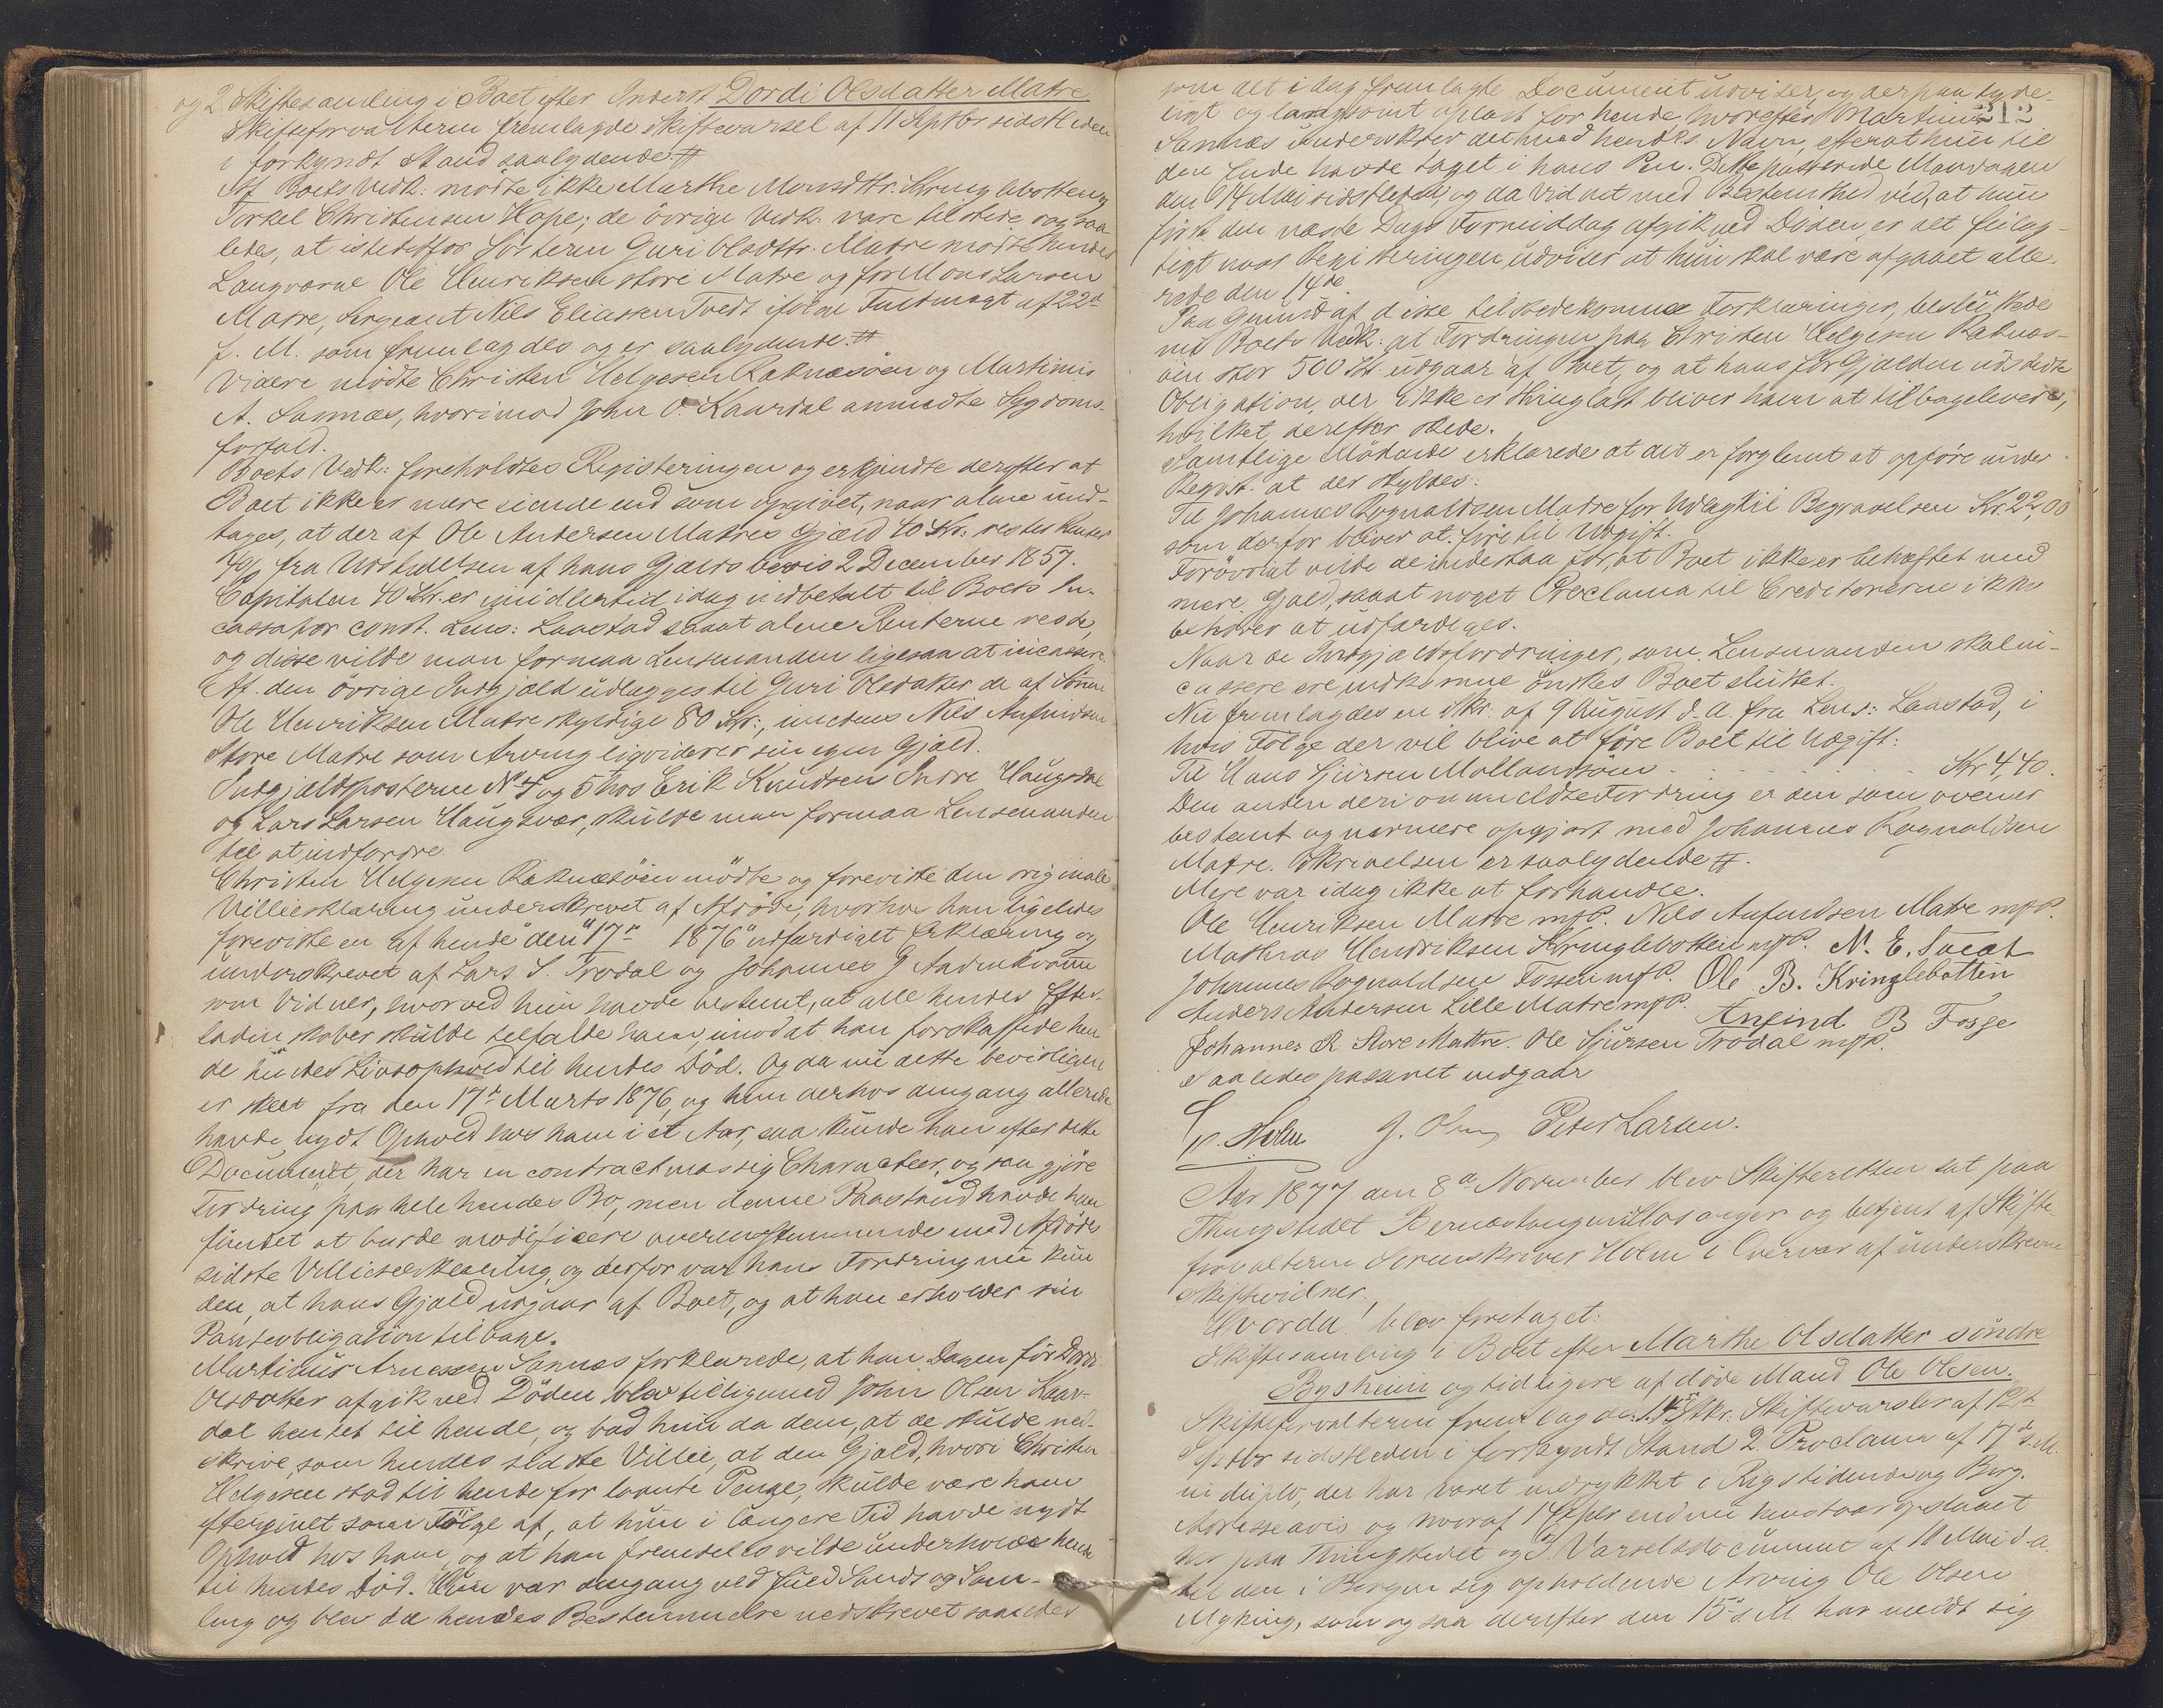 og 2 Skiftesamling i Boet efter Inderst Dordi Olsdatter Matre.
Skifteforvalteren fremlagde Skiftevarsel af 11 Septbr sidstleden
i forkyndt Stand saalydende #
Af Boets Vedk: mødte ikke Marthe Monsdttr. Kringlebotten og
Torkel Christensen Hope; de øvrige Vedk: vare tilstede og saa-
ledes, at istedetfor Søsteren Guri Olsdttr. Matre mødte hendes
Laugværge Ole Henriksen store Matre og for Mons Larsen
Matre, Sergeant Nils Eliassen Tvedt ifølge Fuldmagt af 22d
f. M. som fremlagdes og er saalydende. #
Videre mødte Christen Helgesen Raknesøen og Martinus
A. Sannæs, hvorimod John O. Kaardal anmeldte Sygdoms-
forfald.
Boets Vedk: foreholdtes Registeringen og erkjendte derefter at
Boet ikke er mere eiende end som opgivet, naar alene und-
tages, at der af Ole Andersen Matres Gjæld 40 Kr: restes Renter
fra Udstedelsen af hans Gjældsbevis 2 December 1857.
Capitalen 40 Kr. er imidlertid idag indbetalt til Boets In-
cassator const. Lens: Laastad saaat alene Renterne reste,
og disse vilde man formaa Lensmanden ligesaa at incassere.
Af den øvrige Indgjæld udlægges til Guri Olsdatter de af
Ole Henriksen Matre skyldige 80 Kr:, imedens Nils Anfindsen
Store Matre som Arving ligviderer sin egen Gjæld.
Indgjældsposterne No 4 og 5 hos Erik Knudsen Indre Haugsdal
og Lars Larsen Haugsvær, skulde man formaa Lensmanden
til at indfordre.
Christen Helgesen Raknesøen mødte og foreviste den originale
Villieserklæring underskrevet af Afdøde, hvorhos han ligeledes
foreviste en af hende "den 17n 1876" udfærdiget Erklæring og
underskrevet af Lars S. Trodal og Johannes J Andvikvaam
som Vidner, hvorved hun havde bestemt, at alle hendes Efter-
ladenskaber skulde tilfalde ham, imod at han forskaffede hen
de hendes Livsophold til hendes Død. Og da nu dette bevisligen
er skeet fra den 17d Marts 1876, og hun derhos dengang allerede
havde nydt Ophold hos ham i et Aar, saa kunde han efter dette
Document, der har en contractmæssig Characteer, ogsaa gjøre
Fordring paa hele hendes Bo, men denne Paastand havde han
fundet at burde modificere overensstemmende med Afdødes
sidste Villieserklæring, og derfor var hans Fordring nu kun
den, at hans Gjæld udgaar af Boet, og at han erholder sin
Panteobligation tilbage.
Martinus Arnessen Sannæs forklarede, at han Dagen før Dordi
Olsdatter afgik ved Døden blev tilligemed John Olsen Kaar-
dal hentet til hende, og bad hun da dem, at de skulde ned-
skrive, som hendes sidste Villie, at den Gjæld, hvori Christen
Helgesen stod til hende for laante Penge, skulde være ham
eftergivet som Følge af, at hun i længere Tid havde nydt
Ophold hos ham, og at han fremdeles vilde underholde hende
til hendes Død. Hun var dengang ved fuld Sands og Sam-
ling og blev da hendes Bestemmelse nedskrevet saaledes
som det i dag fremlagte Document udviser, og derpaa tyde-
ligt og langsomt oplæst for hende, hvorefter Martinus
212
Sannæs underskrev det med hendes Navn, efterat hun til
den Ende havde taget i hans Pen. Dette passerede Mandagen
den 14 Mai sidstleden, og da Vidnet med Bestemthed ved, at hun
først den næste Dags Formiddag afgik ved Døden, er det feilag-
tigt naar Registeringen udviser at hun skal være afgaaet alle-
rede den 14de.
Paa Grund af disse tilstedekomne Forklaringer, beslutttede
nu Boets Vedk: at Fordringen paa Christen Helgesen Raknes-
øen stor 500 Kr. udgaar af Boet, og at hans for Gjælden udstedte
Obligation, der ikke er thinglæst bliver ham at tilbagelevere,
hvilket derefter skede.
Samtlige Mødende erklærede at det er forglemt at opføre under
Regist. at der skyldes:
Til Johannes Rognaldsen Matre for Udlæg til Begravelsen Kr. 22,00
som derfor bliver at føre til Udgift.
Forøvrigt vilde de indestaa for, at Boet ikke er behæftet med
mere Gjæld, saaat noget Proclama til Creditorerne ikke
behøver at udfærdiges.
Naar de Indgjældsfordringer, som Lensmanden skal in-
cassere ere indkomne ønskes Boet sluttet.
Nu fremlagdes en Skr: af 9 August d. A. fra Lens: Laastad, i
hvis Følge der vil blive at føre Boet til Udgift:
Til Hans Sjursen Mollandsøen . . . . . . . Kr 4,40.
Den anden deri anmeldte Fordring er den som ovenfor
bestemt og nærmere opgjort med Johannes Rognaldsen
Matre. Skrivelsen er saalydende #.
Mere var idag ikke at forhandle.
Ole Henriksen Matre mfP. Nils Anfindsen Matre mfP.
Mathias Hendriksen Kringlebotten mfP. N. E. Tvedt
Johannes Rognaldsen Fossen mfP. Ole B. Kringlebotten
Anders Andersen Lille Matre mfP. Anfind B Fosse
Johannes R Store Mattre. Ole Sjursen Trodal mfP.
Saaledes passeret indgaar
Holm J. Olsen Peter Larsen.
Aar 1877 den 8d November blev Skifteretten sat paa
Thingstedet Kernæstangen i Hosanger og betjent af Skifte-
forvalteren Sorenskriver Holm i Overvær af underskrevne
Skiftevidner,
Hvorda! blev foretaget:
Skiftesamling i Boet efter Marthe Olsdatter søndre
Bysheim og tidligere afdøde Mand Ole Olsen.
Skifteforvalteren fremlagde: 1. Skr. Skiftevarsler af 12te
Septbr sidstleden i forkyndt Stand 2. Proclama af 17d s. M.
in duplo, der har været indrykket i Rigstidende og Berg.
Adresseavis og hvoraf 1 Expl er endnu henstaar opslaaet
her paa Thingstedet og 3. Varselsdocument af 10 Mai d. A.
til den i Bergen sig opholdende Arving Ole Olsen
Myking, som og saa derefter den 15d s. M. har meldt sig